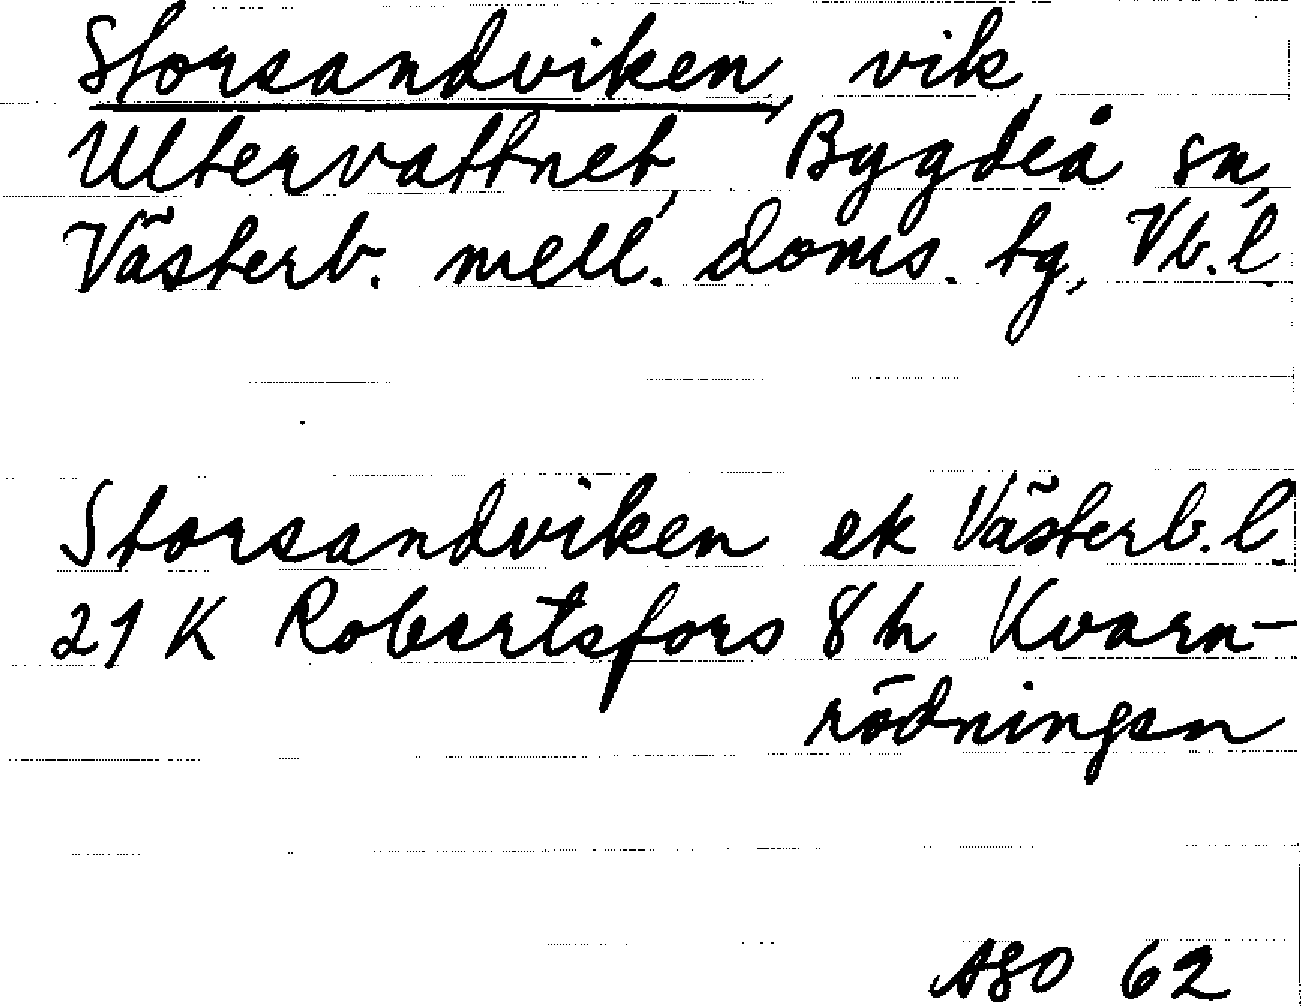 Storsandviken, vik,
Ultervattnet, Bygdeå sn,
Västerb. mell. doms. tg, Vb. l
Storsandviken ek Västerb. l.
21 K Robertsfors 8 h Kvarn-
rödningen
ASO 62